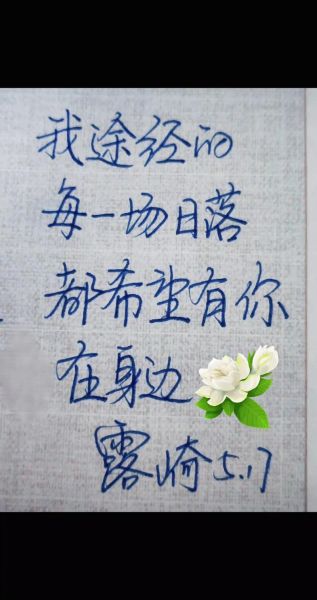 我途经的
每一场日落
都希望有你
在身边
露崎5.17